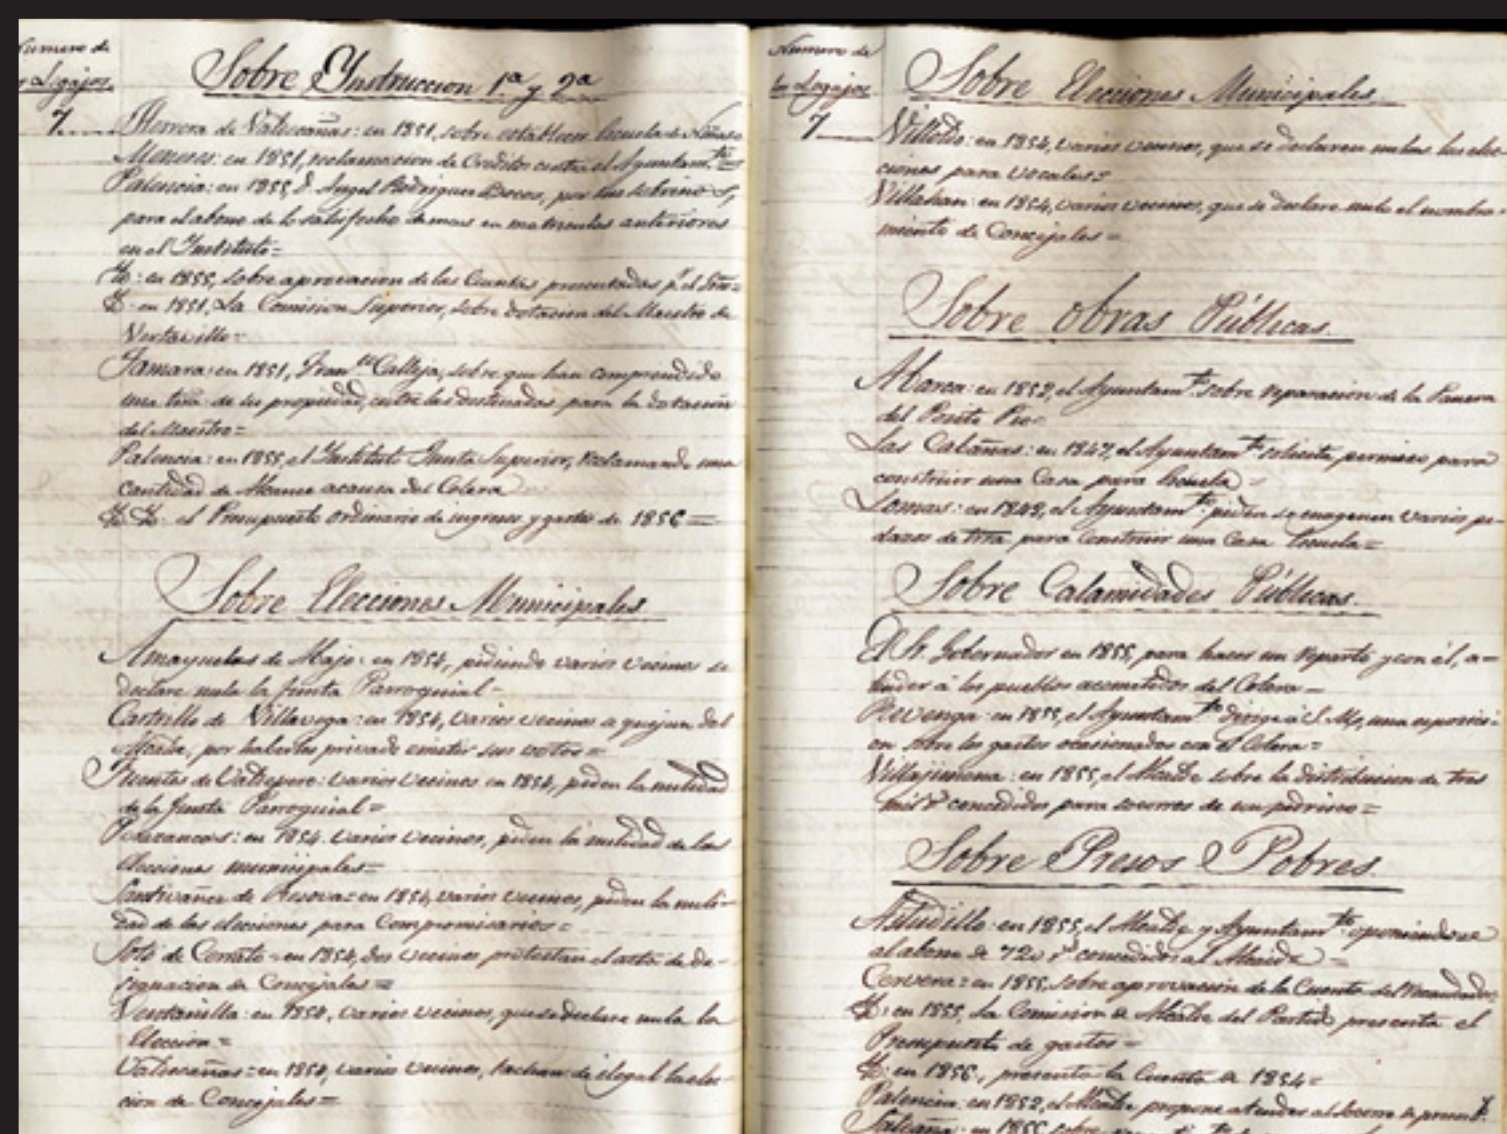 Numero de
los Legajos.
Sobre Instruccion 1ª y 2ª
7. Herrera de Valdecañas: en 1851, sobre establecer Escuela de Niñas=
Meneses: en 1851, reclamacion de Creditos contra el Ayuntamto=
Palencia: en 1855, D. Angel Rodriguez Bocos, por sus sobrinos,
para el abono de lo satisfecho demas en matriculas anteriores
en el Instituto=
Yd: en 1855, sobre aprovacion de las Cuentas presentadas pr el
Yd: en 1851, La Comision Superior, sobre dotacion del Maestro de
Vertavillo=
Tamara: en 1851, Franco Calleja, sobre que han comprendido
una de su propiedad, entre las destinadas para la dotacion
del Maestro=
Palencia: en 1855, el Instituto Junta Superior, reclamando una
cantidad de Alcance acausa del Colera
Yd. Yd. el Presupuesto ordinario de ingresos y gastos de 1856=
Sobre Elecciones Municipales
Amayuelas de Abajo: en 1854, pidiendo varios vecinos se
declare nula la Junta Parroquial=
Castrillo de Villavega: en 1854, varios vecinos se quejan del
Alcalde, por haberles privado emitir sus votos=
Fuentes de Valdepero: varios vecinos en 1854, piden la nulidad
de la Junta Parroquial=
Perazancas: en 1854. varios vecinos, piden la nulidad de las
Elecciones municipales=
Santivañez de Resova= en 1854, varios vecinos, piden la nuli-
dad de las elecciones para Compromisarios=
Soto de Cerrato= en 1854, dos vecinos protestan el acto de de-
signacion de Concejales=
Ventanilla: en 1854, varios vecinos, que se declare nula la
Eleccion=
Valdecañas= en 1854, varios vecinos, tachan de ilegal la elec-
cion de Concejales=
Numero de
los Legajos
Sobre Elecciones Municipales.
7 Villodre: en 1854, varios vecinos, que se declaren nulas las elec-
ciones para vocales=
Villahan: en 1854, varios vecinos, que se declare nulo el nombra-
miento de Concejales=
Sobre obras Públicas.
Abarca: en 1852, el Ayuntamto sobre reparacion de la Panera
del Posito Pio=
Las Cabañas: en 1847, el Ayuntamto solicita permiso para
construir una Casa para Escuela=
Lomas: en 1849, el Ayuntamto piden se enagenen varios pe-
dazos de trra para Construir una Casa Escuela=
Sobre Calamidades Públicas.
El Sr. Gobernador en 1855, para hacer un reparto y con él, a=
tender á los pueblos acometidos del Colera=
Revenga: en 1855, el Ayuntamto dirige á S. M., una exposici=
on sobre los gastos ocasionados con el Colera=
Villajimena: en 1855, el Alcalde sobre la distribucion de tres
mil rs concedidos para socorros de un pedrisco=
Sobre Presos é Pobres.
Astudillo: en 1855, el Alcalde y Ayuntamto oponiendose
al abono de 720 rs concedidos al Alcaide=
Cervera= en 1855, sobre aprovacion de la Cuenta del Recaudador
Yd: en 1855, La Comision de Alcalde del Partido, presenta el
Presupuesto de gastos=
Yd: en 1856, presenta la Cuenta de 1854=
Palencia: en 1852, el Alcalde propone atender al Socorro de presos
Saldaña: en 1855 sobre